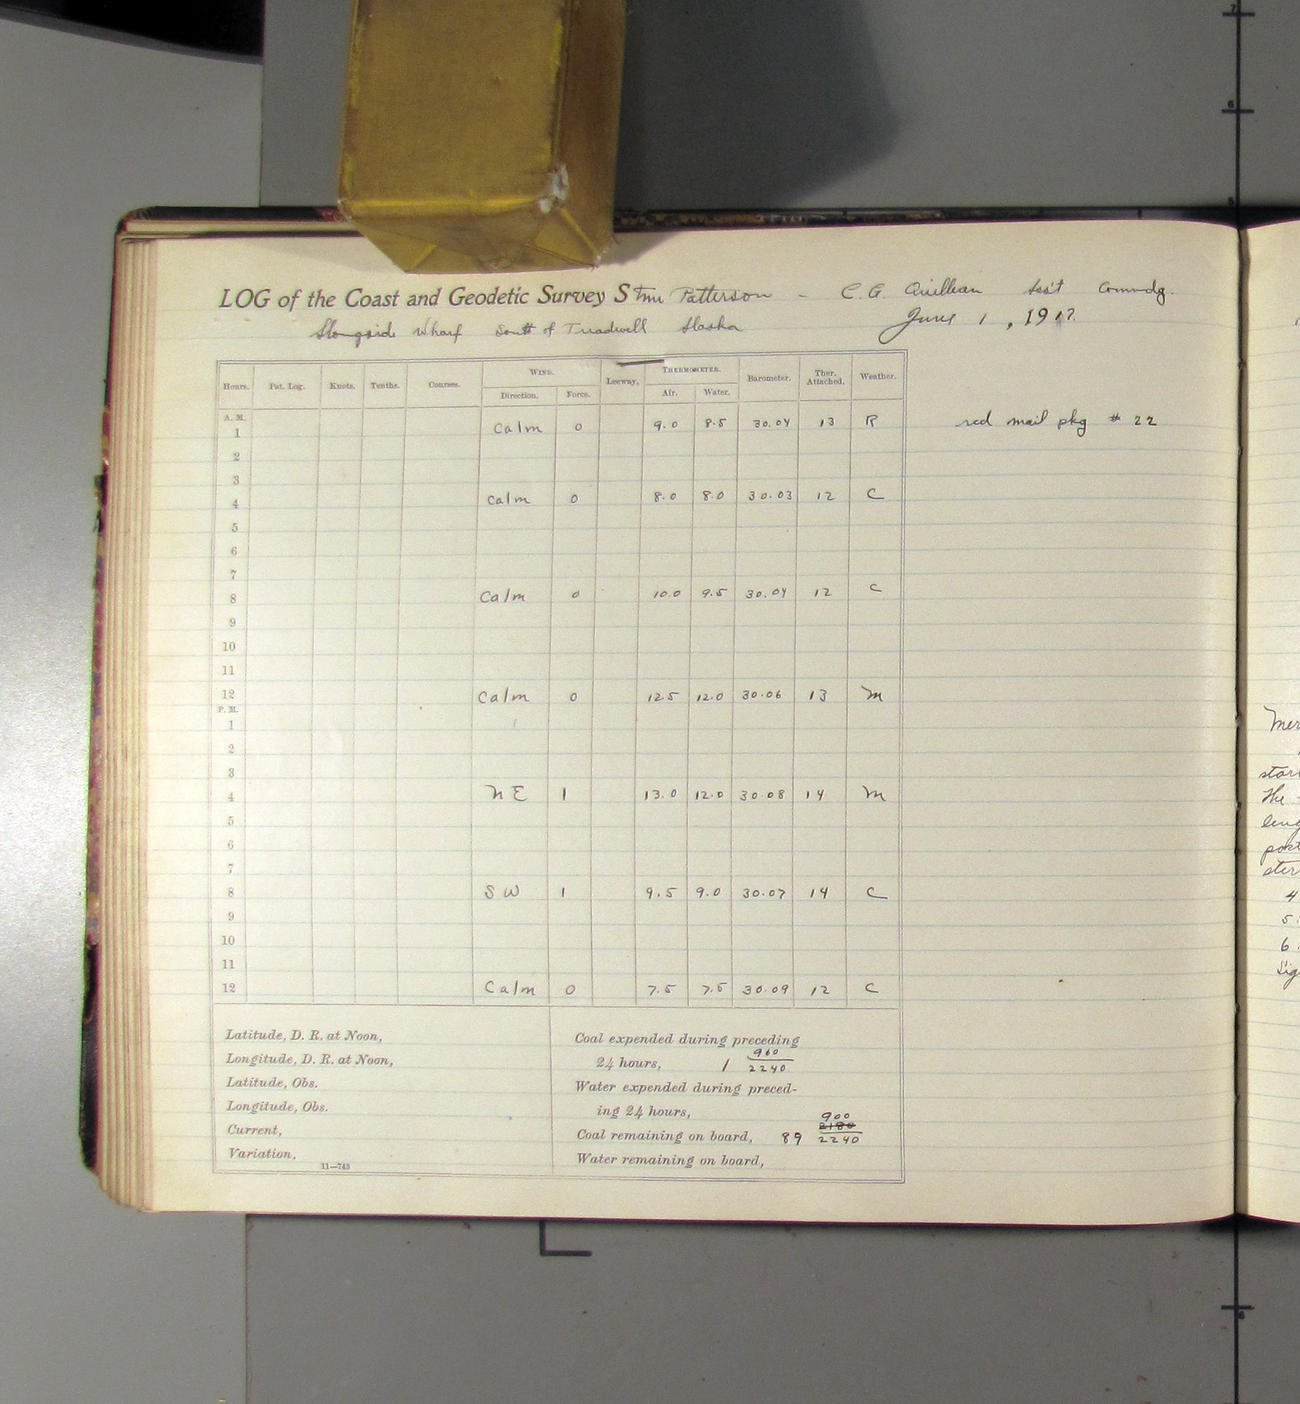 LOG of the Coast and Geodetic Survey Stmr Patterson - C. G. Quillian Ass't Commdg.
Alongside Wharf South of Treadwell Alaska June 1, 1912.
Hours. Pat. Log. Knots. Tenths. Courses. WIND. Direction. Force. Leeway. THERMOMETER. Air. Water. Barometer. Ther. Attached. Weather.
A. M.
1 Calm 0 9.0 8.5 30.04 13 R rcd mail pkg # 22
2
3
4 Calm 0 8.0 8.0 30.03 12 C
5
6
7
8 Calm 0 10.0 9.5 30.04 12 C
9
10
11
12 Calm 0 12.5 12.0 30.06 13 m
P. M.
1
2
3
4 NE 1 13.0 12.0 30.08 14 m
5
6
7
8 SW 1 9.5 9.0 30.07 14 C
9
10
11
12 Calm 0 7.5 7.5 30.09 12 C
Latitude, D. R. at Noon,
Longitude, D. R. at Noon,
Latitude, Obs.
Longitude, Obs.
Current,
Variation,
11—743
Coal expended during preceding
24 hours, 1 960/2240
Water expended during preced-
ing 24 hours,
Coal remaining on board, 89 900/2240
Water remaining on board,
the
4
5
6